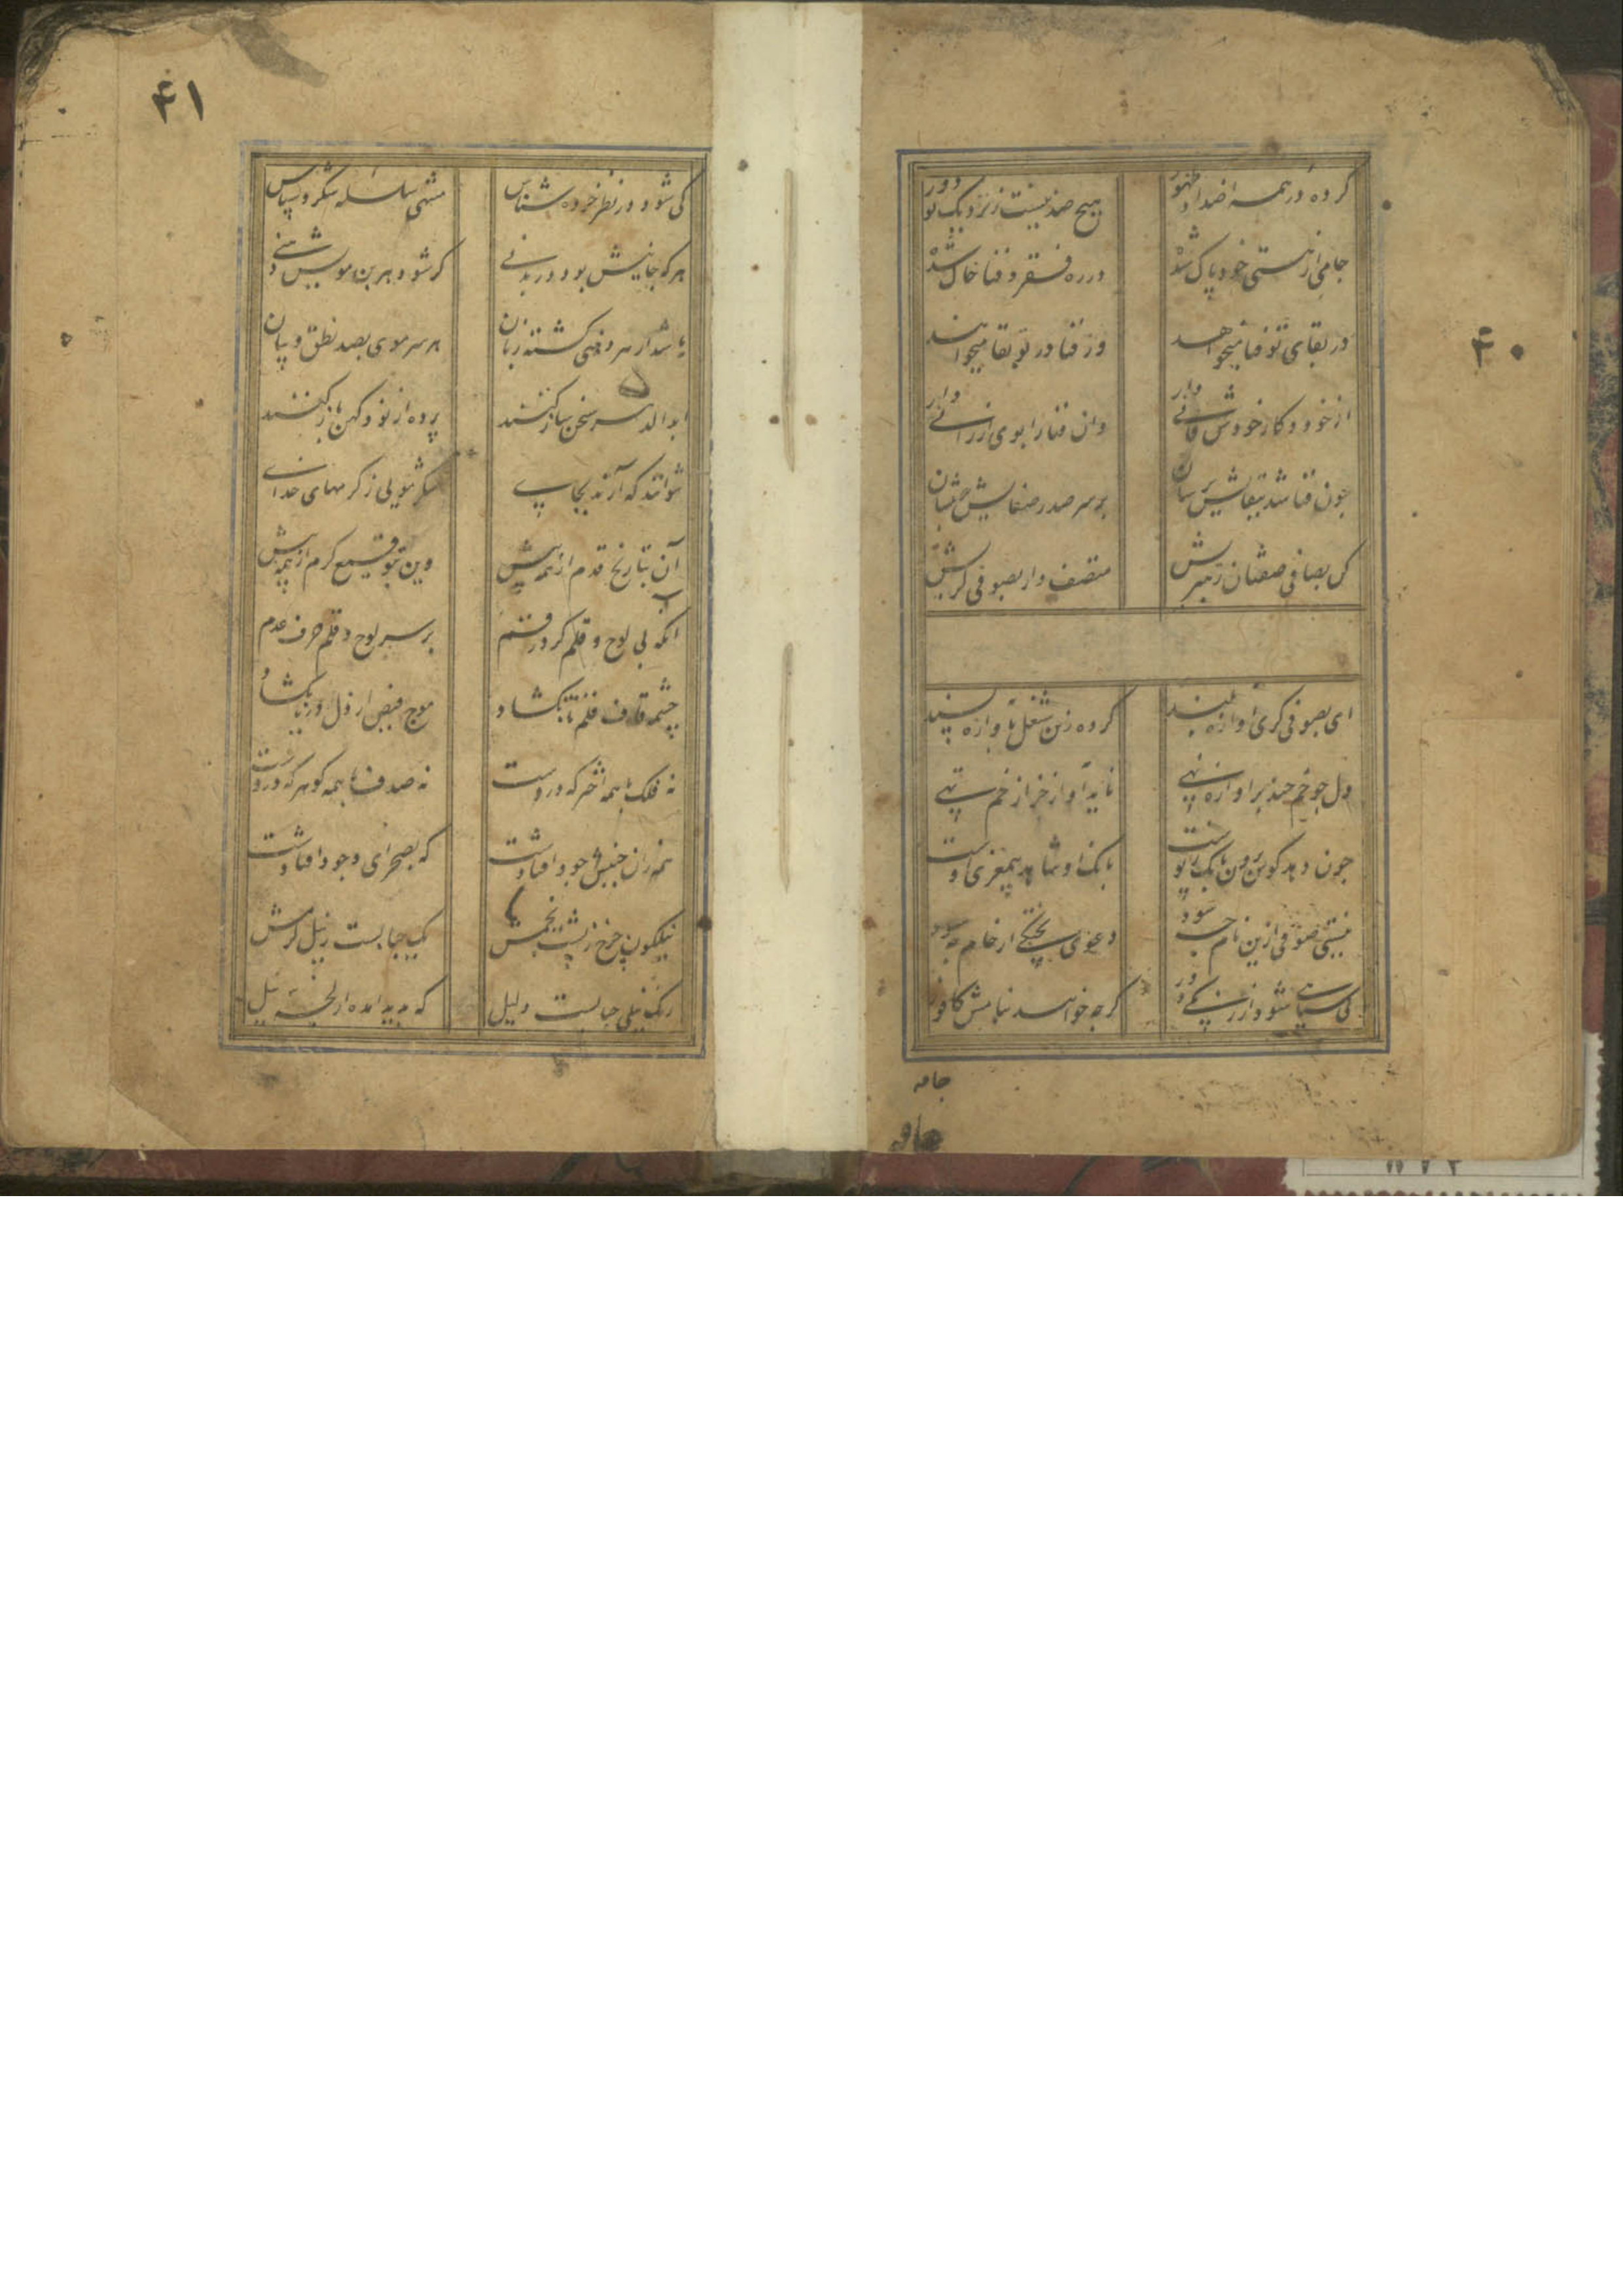 ۴۰
کرده در همه اضداد ظهور هیچ ضد نیست ز نزدیک تو دور
جامی از هستی خود پاک شده در ره فقر و فنا خاک شده
در بقای تو فنا میخواهد وز فنا در تو بقا میخواهد
از خود و کار خودش فانی دار وان فنا را بوی ارزانی دار
چون فنا شد ببقایش برسان بر سر صدر صفایش بنشان
کن بصافی صفتان رهبریش متصف دار بصوفی کریش
ای بصوفی کری اوازه بلند کرده زین شغل باوازه پسند
دل چو خم چند پر اوازه نهی ناید آواز جز از خم تهی
چون دهد کوس برون بانک ز پوست بانک او شاهد بیمغزی اوست
نیستی صوفی ازین نام چه سود دعوی پختکی از خام چه سود
کی سیاهی شود از زنکی دور کرچه خوانند بنامش کافور
جامه
۴۱
کی شود در نظر خرده شناس منتهی سلسله شکر و سپاس
هر که جانیش بود در بدنی کر شود هر بن مویش دهنی
باشد از هر دهنی کشته زبان هر سر موی بصد نطق و بیان
ابد الدهر سخن ساز کنند پرده از نو و کهن باز کنند
نتوانند که آرند بجای شکر مویی ز کرمهای خدای
آن بتاریخ قدم از همه پیش وین بتوقیع کرم از همه بیش
آنکه بی لوح و قلم کرد رقم بر سر لوح و قلم حرف قدم
چشمه قاف قلم تا نکشاد موج فیض از دل دریا نکشاد
نه فلک با همه اختر که دروست نه صدف با همه کوهر که دروست
همه زان جنبش جود افتادست که بصحرای وجود افتادست
نیلکون چرخ ز پشت بخمش یک حبابست ز نیل کرمش
رنک نیلی حبابست دلیل که پدید امده از لجه نیل